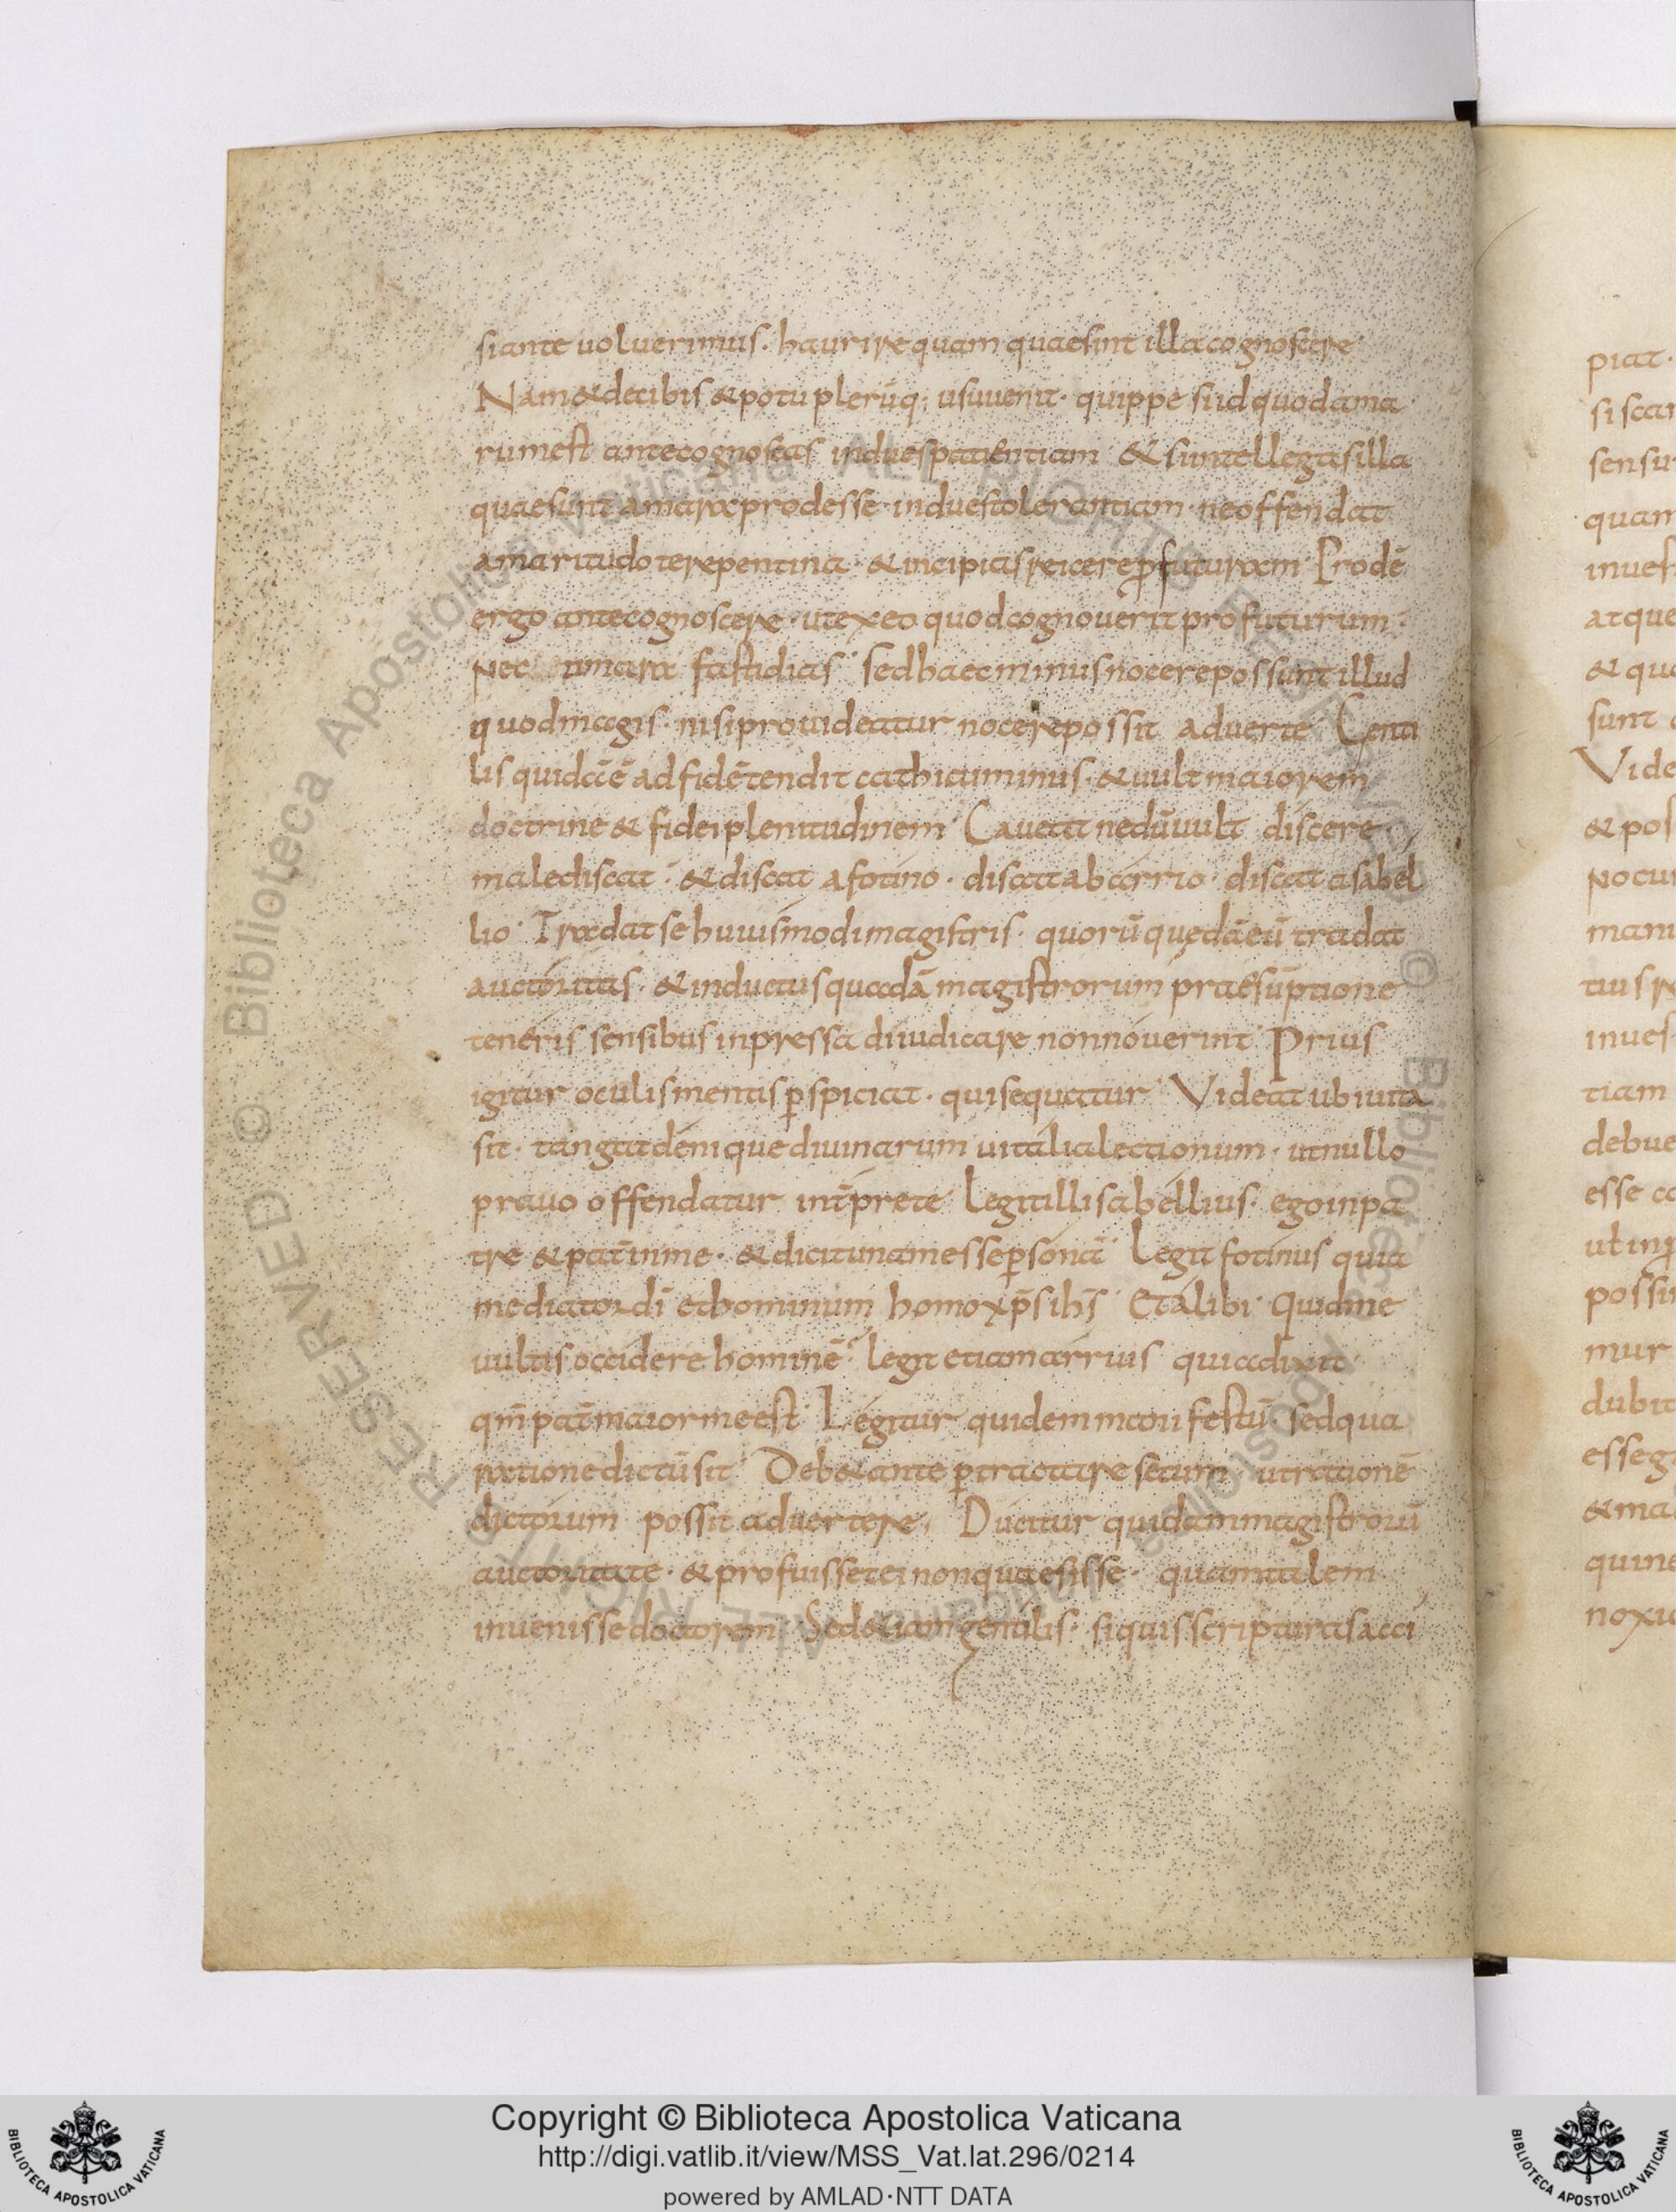 siante uoluerimus · haurire quam quaesint illa cognoscere ·
Nam & decibis & potu plerūq; usuuenit · quippe si id quod ama
rum est ante cognoscas induespatientiam & si intellegas illa
quae sunt amara prodesse · indues tolerantiam · ne offendat
amaritudo te repentina · & incipias reicere ꝓfuturam · Prodē
ergo ante cognoscere · ut ex eo quod cognouerit profuturum ·
nec amara fastidias · sed haec minus nocere possunt illud
quod magis · nisi prouideatur nocere possit aduerte · Genti
lis quidā ē ad fidē tendit cathicuminus · & uult maiorem
doctrine & fidei plenitudinem · Caueat ne dū uult discere
male discat · & discat a fotino · discat ab arrio · discat a sabel
lio · Tradat se huiusmodi magistris · quorū quędā eū tradat
auctoritas · & inductus quadā magistrorum praesūptione
teneris sensibus inpressa diiudicare non nouerint · Prius
igitur oculis mentis ꝑspiciat · qui sequatur · Videat ubi uita
sit · tangat denique diuinarum uitalia lectionum · ut nullo
prauo offendatur int̄prete · Legit illi sabellius · ego in pa
tre & pat̄ in me · & dicit unam esse ꝑsonā · Legit fotinus quia
mediator dī et hominum homo xp̄s ihs̄ · Et alibi · Quid me
uultis occidere hominē · legit etiam arrius quia dixit ·
qm̄ pat̄ maior me est · Legitur quidem manifestū · sed qua
ratione dictū sit · Deb& ante ꝑtractare secum · ut rationē
dictorum possit aduertere, Ducitur quidam magistrorū
auctoritate · & profuisset ei non quaesisse · quam talem
inuenisse doctorem · Sed & iam gentilis · si quis scripturas acci
piat ·
sensu
quam
atque
& qu
sunt
Vide
& pos
inues
tiam
debue
esse
possi
mur
dubit
esse
& ma
quine
noxi
Biblioteca Apostolica Vaticana ALL RIGHTS RESERVED ©
Copyright © Biblioteca Apostolica Vaticana
http://digi.vatlib.it/view/MSS_Vat.lat.296/0214
powered by AMLAD·NTT DATA
BIBLIOTECA APOSTOLICA VATICANA
BIBLIOTECA APOSTOLICA VATICANA